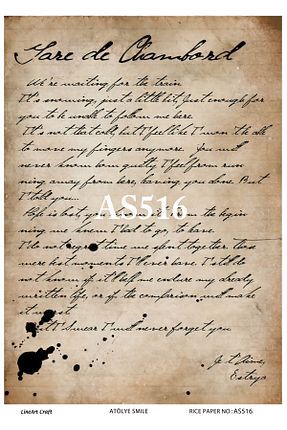 Gare de Chambord
We're waiting for the train
It's snowing, just a little bit, just enough for
you to be unable to follow me here.
It's not that cold, but I feel like I won't be able
to move my fingers anymore. You will
never know how guilty I feel from run
ning away from here, leaving you alone. But
I told you...
Hope is lost, you know it. From the begin
ning we knew I had to go, to leave.
I do not regret time we spent together. Those
were best moments I'll ever have. I still do
not know if it'll help me endure my already
written life, or if the comparison will make
it worst
But I swear I will never forget you
Je t'aime,
Estryo
AS516
LineArt Craft
ATÖLYE SMILE
RICE PAPER NO: AS516